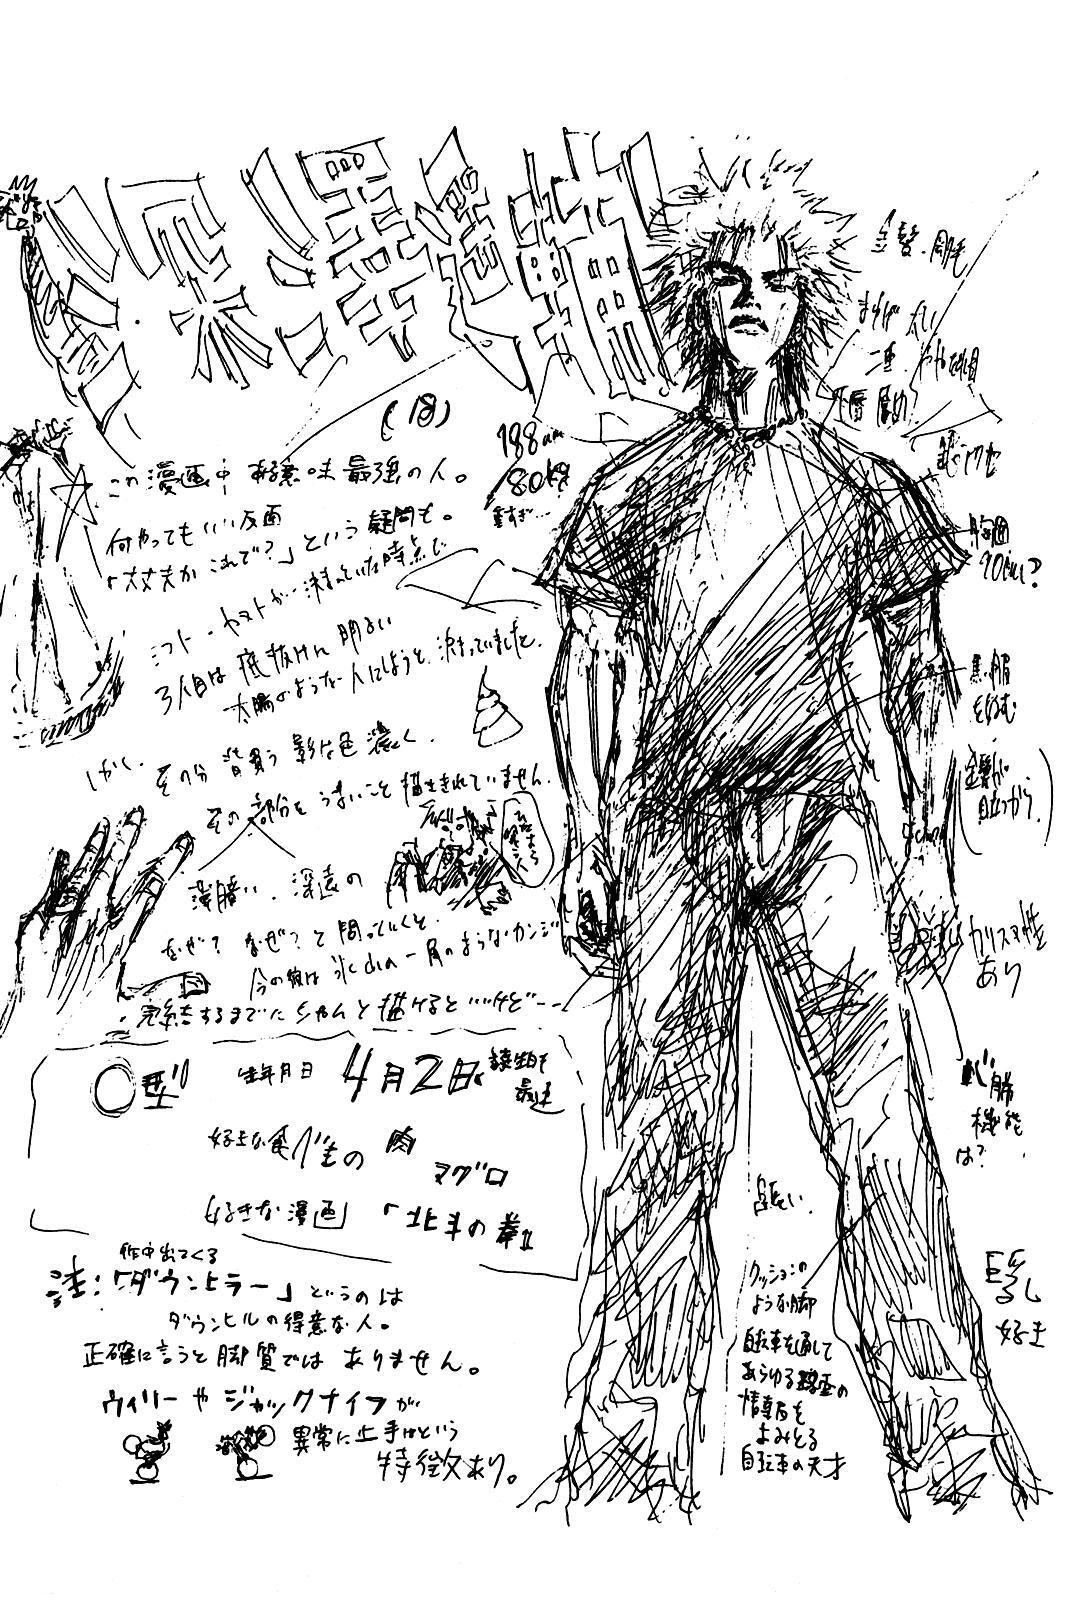 深澤遥輔
(18)
この漫画中 ある意味最強の人。
何やってもいい反面
「大丈夫か これで?」という疑問も。
シフト・ヤマトが決まっていた時点で
3人目は底抜けに明るい
太陽のような人にしようと、決まっていました。
しかし、その分背負う影は色濃く、
その部分をうまいこと描ききれていません。
薄暗い、深遠の
なぜ? なぜ? と問っていくと
今の彼は氷山の一角のようなカンジ
完結するまでにちゃんと描けるといいけど…
O型 生年月日 4月2日
好きな食べもの 肉
マグロ
好きな漫画 「北斗の拳」
作中出てくる
注:「ダウンヒラー」というのは
ダウンヒルの得意な人。
正確に言うと脚質ではありません。
ウィリーやジャックナイフが
異常に上手だという
特徴あり。
188cm
80kg
重すぎ…
金髪・剛毛
まゆげ 太い
二重
厚め
胸囲
90cm?
黒い服
を好む
(金髪が
目立つから。)
カリスマ性
あり
機能
は?
長い、
クッションの
ような脚
自転車を通して
あらゆる路面の
情報を
よみとる
自転車の天才
巨乳
好き